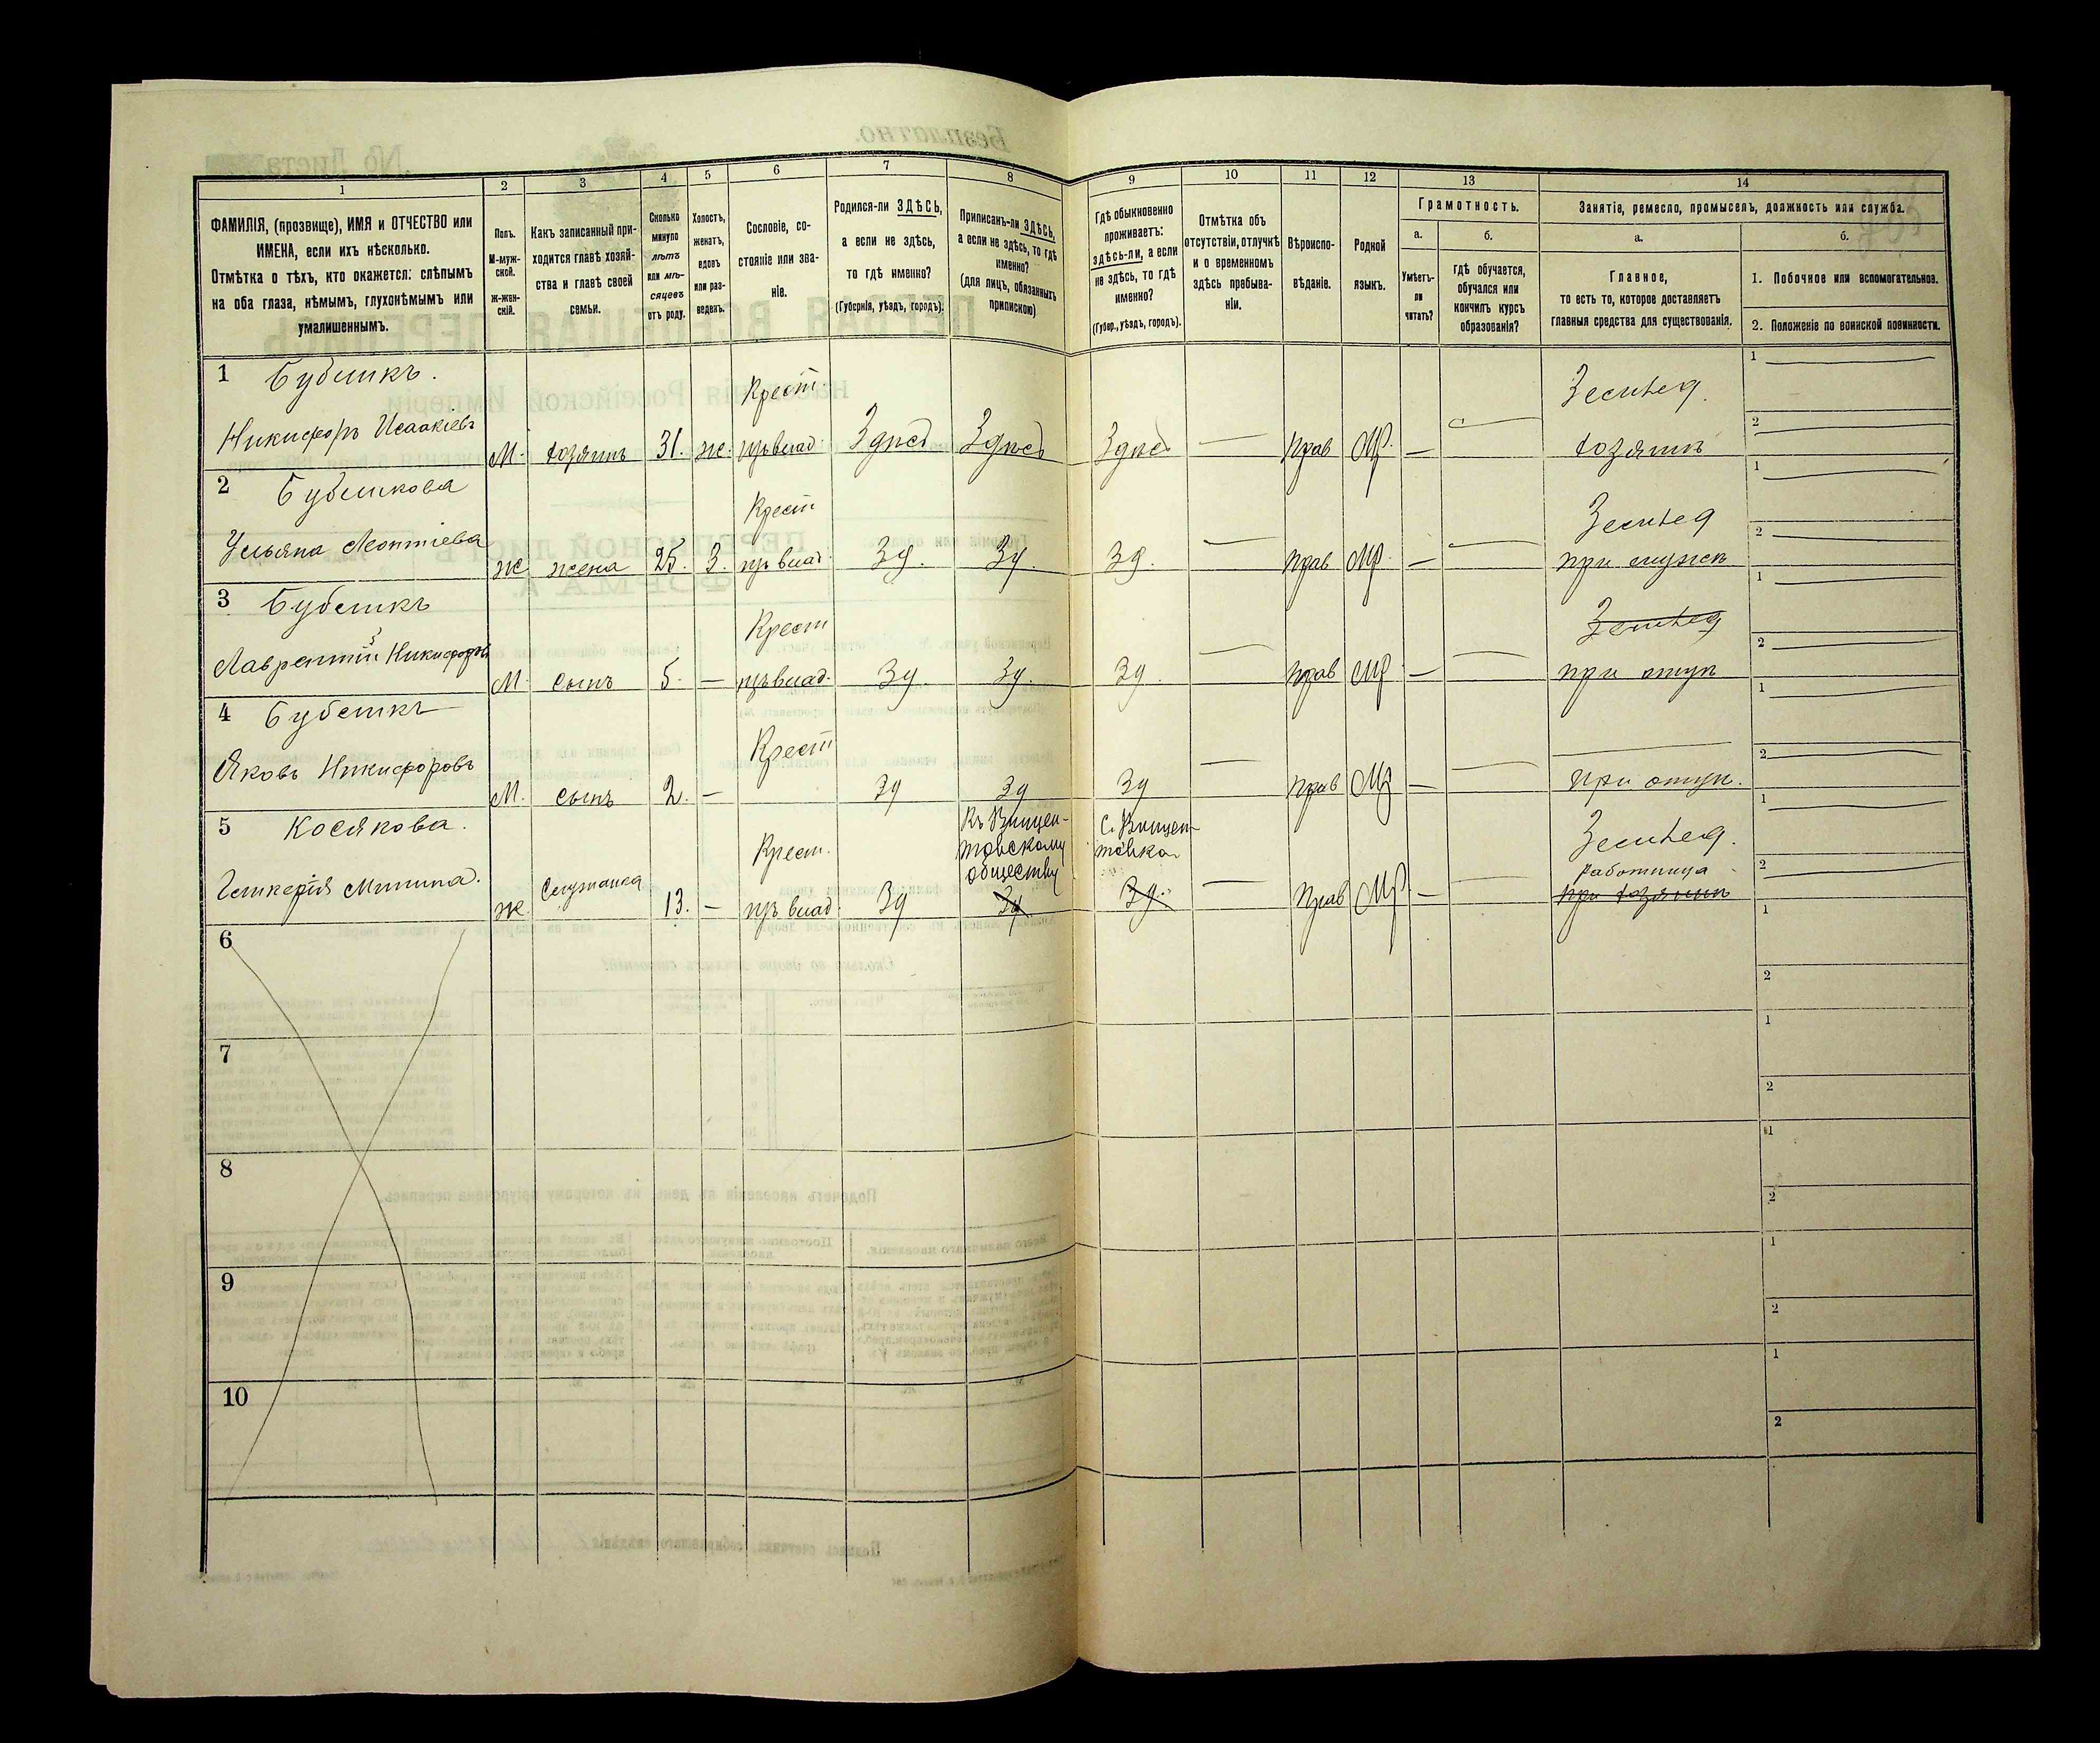 1 2 3 4 5 6 7 8 9 10 11 12 13 14
ФАМИЛІЯ, (прозвище), ИМЯ и ОТЧЕСТВО или
ИМЕНА, если ихъ нѣсколько.
Отмѣтка о тѣхъ, кто окажется: слѣпымъ
на оба глаза, нѣмымъ, глухонѣмымъ или
умалишеннымъ.
Полъ.
М-муж-
ской.
Ж-жен-
скій.
Какъ записанный при-
ходится главѣ хозяй-
ства и главѣ своей
семьи.
Сколько
минуло
лѣтъ
или мѣ-
сяцевъ
отъ роду.
Холостъ,
женатъ,
вдовъ
или раз-
веденъ.
Сословіе, со-
стояніе или зва-
ніе.
Родился-ли ЗДѢСЬ,
а если не здѣсь,
то гдѣ именно?
(Губернія, уѣздъ, городъ).
Приписанъ-ли ЗДѢСЬ,
а если не здѣсь, то гдѣ
именно?
(для лицъ, обязанныхъ
припискою)
Гдѣ обыкновенно
проживаетъ:
здѣсь-ли, а если
не здѣсь, то гдѣ
именно?
(Губер., уѣздъ, городъ).
Отмѣтка объ
отсутствіи, отлучкѣ
и о временномъ
здѣсь пребыва-
ніи.
Вѣроиспо-
вѣданіе.
Родной
языкъ.
Грамотность.
а.
Умѣетъ-
ли
читать?
б.
гдѣ обучается,
обучался или
кончилъ курсъ
образованія?
Занятіе, ремесло, промыселъ, должность или служба.
а.
Главное,
то есть то, которое доставляетъ
главныя средства для существованія.
б.
1. Побочное или вспомогательное.
2. Положеніе по воинской повинности.
1
Никифоръ Исаакіевъ
Крест
М. хозяинъ 31. ж. Здѣсь Здѣсь Здѣсь — Прав — Землед. хозяинъ
1
2
2
Ульяна Леонтіева
Крест
ж жена 25. З. Зд. Зд. Зд. — Прав — Землед при мужѣ
1
2
3
Лаврентій
Крест
М. сынъ 5. — Зд. Зд. Зд. — Прав — Землед при отцѣ
1
2
4
Яковъ Никифоровъ
Крест
М. сынъ 2. — Зд Зд Зд — Прав — при отцѣ.
1
2
5 Косякова.
Гликерія Минина.
Крест.
ж Служанка 13. — Зд
Къ Винцен-
товскому
обществу
Зд
С. Винцен-
товка
Зд.
— Прав —
Землед.
работница
при хозяинѣ
1
2
6
1
2
7
1
2
8
1
2
9
1
2
10
1
2